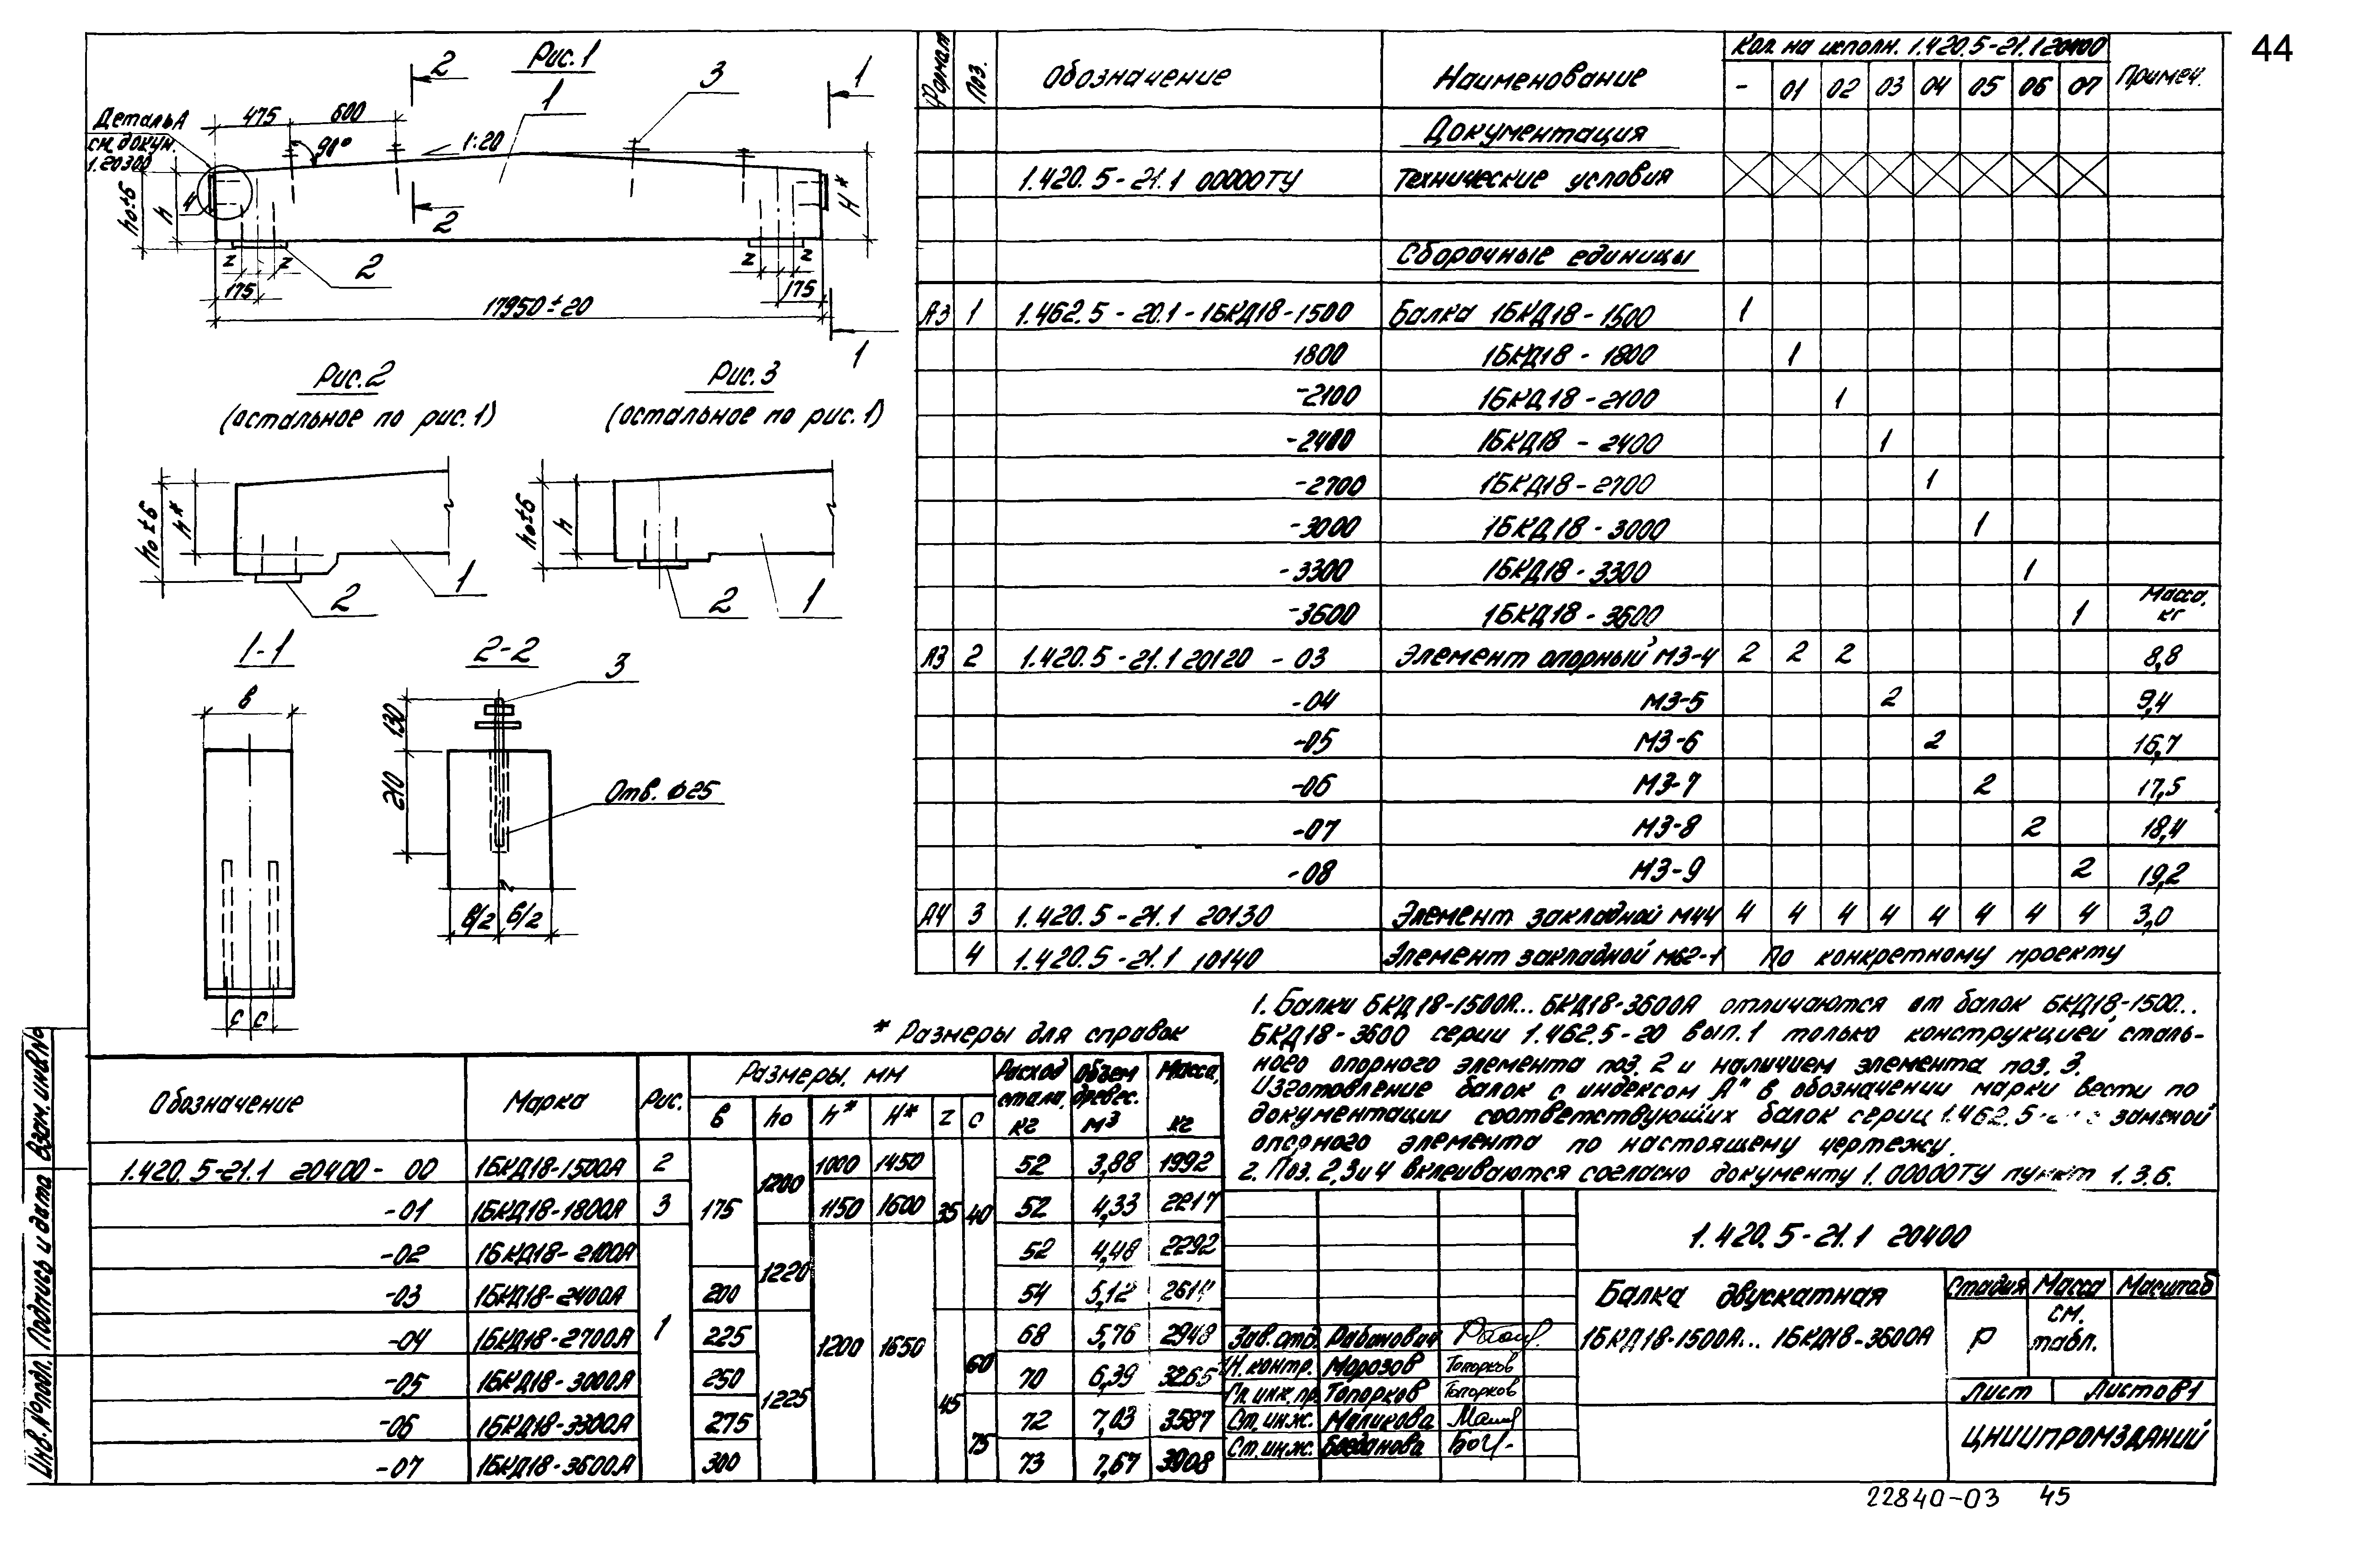 44
Рис.1
2
3
1
1
Деталь А
см. докум.
1.20300
475
600
90°
1:20
h₀±6
h
4
H*
2
z z
2
z z
175
175
17950±20
1
Рис.2
(остальное по рис.1)
Рис.3
(остальное по рис.1)
h₀±6
h*
2
1
h₀±6
h
2
1
1-1
2-2
в
3
130
210
Отв. ф25
в/2 в/2
с с
Формат Поз. Обозначение Наименование Кол. на исполн. 1.420.5-21.1 20400 Примеч.
- 01 02 03 04 05 06 07
Документация
1.420.5-21.1 00000ТУ Технические условия
Сборочные единицы
А3 1 1.462.5-20.1-1БКД18-1500 Балка 1БКД18-1500 1
1800 1БКД18-1800 1
-2100 1БКД18-2100 1
-2400 1БКД18-2400 1
-2700 1БКД18-2700 1
-3000 1БКД18-3000 1
-3300 1БКД18-3300 1
-3600 1БКД18-3600 1 Масса, кг
А3 2 1.420.5-21.1 20120 -03 Элемент опорный МЗ-4 2 2 2 8,8
-04 МЗ-5 2 9,4
-05 МЗ-6 2 16,7
-06 МЗ-7 2 17,5
-07 МЗ-8 2 18,4
-08 МЗ-9 2 19,2
А4 3 1.420.5-21.1 20130 Элемент закладной М44 4 4 4 4 4 4 4 4 3,0
4 1.420.5-21.1 10140 Элемент закладной М62-1 По конкретному проекту
* Размеры для справок
Обозначение Марка Рис. Размеры, мм Расход стали, кг Объем древес. м³ Масса, кг
в h₀ h* H* z с
1.420.5-21.1 20400- 00 1БКД18-1500А 2 175 1200 1000 1450 35 40 52 3,88 1992
-01 1БКД18-1800А 3 1150 1600 52 4,33 2217
-02 1БКД18-2100А 1 1220 1200 1650 52 4,48 2292
-03 1БКД18-2400А 200 54 5,12
-04 1БКД18-2700А 225 1225 45 60 68 5,76 2948
-05 1БКД18-3000А 250 70 6,39 3265
-06 1БКД18-3300А 275 75 72 7,03 3587
-07 1БКД18-3600А 300 73 7,67 3908
1. Балки БКД18-1500А... БКД18-3600А отличаются от балок БКД18-1500...
БКД18-3600 серии 1.462.5-20 вып.1 только конструкцией сталь-
ного опорного элемента поз. 2 и наличием элемента поз. 3.
Изготовление балок с индексом А" в обозначении марки вести по
документации соответствующих балок серии 1.462.5- заменой
опорного элемента по настоящему чертежу.
2. Поз. 2,3 и 4 вклеиваются согласно документу 1.00000ТУ пункт 1.3.6.
1.420.5-21.1 20400
Балка двускатная
1БКД18-1500А... 1БКД18-3600А
Стадия Масса Масштаб
Р см. табл.
Лист Листов 1
ЦНИИПРОМЗДАНИЙ
Зав. отд. Рабинович
Н. контр. Морозов Топорков
Гл. инж. пр. Топорков Топорков
Ст. инж. Маликова
Ст. инж. Богданова
Инв. № подл. Подпись и дата Взам. инв. №
22840-03 45